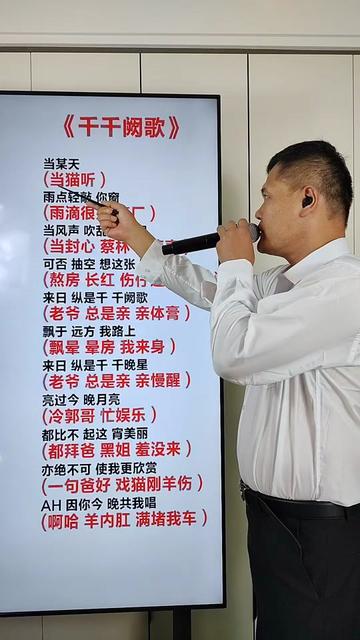 《千千阙歌》
当某天
(当猫听)
雨点轻敲 你窗
(雨滴很 厂)
当风声 吹乱
(当封心 蔡林
可否 抽空 想这张
(熬房 长红 伤
来日 纵是千 千阙歌
(老爷 总是亲 亲体膏)
飘于 远方 我路上
(飘晕 晕房 我来身)
来日 纵是千 千晚星
(老爷 总是亲 亲慢醒)
亮过今 晚月亮
(冷郭哥 忙娱乐)
都比不 起这 宵美丽
(都拜爸 黑姐 羞没来)
亦绝不可 使我更欣赏
(一句爸好 戏猫刚羊伤)
AH 因你今 晚共我唱
(啊哈 羊内肛 满堵我车)